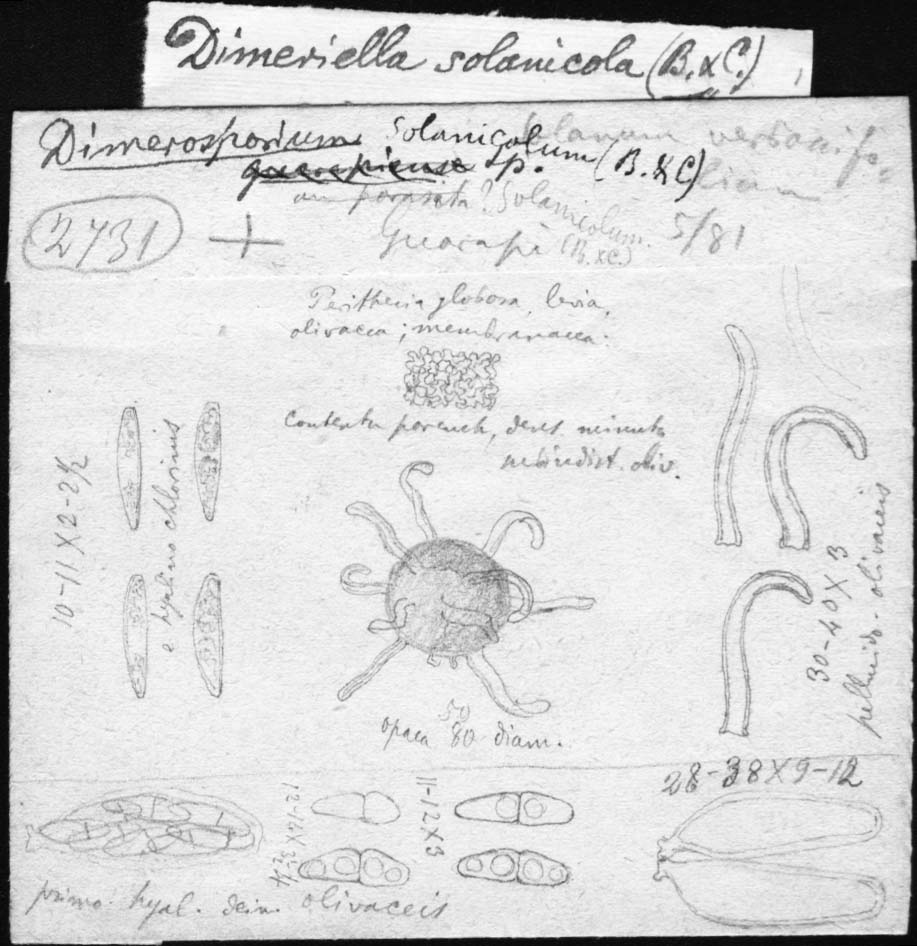 Dimeriella solanicola (B. & C.)
Dimerosporium Solanicolum (B. & C)
guarapiense sp.
Solanum verbascifo-
lium
an parasita? Solanicolum.
(B. & C.)
2731 + Guarapi 5/81
Perithecia globosa, levia,
olivacea; membranacea:
contextu parench, dens. minute
subindist. oliv.
10-11 X 2-2½
e hyalino chlorinis
30-40 X 3
pellucido-olivaceis
50
opaca 80 diam.
28-38 X 9-12
12-14 X 3½-4
11-12 X 3
primo hyal. dein olivaceis